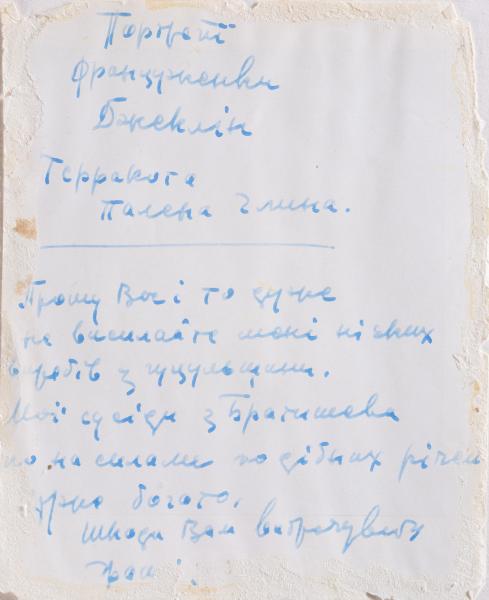 Портрет
француженки
Джеклін
Терракота
палена глина.
Прошу Вас і то дуже
не висилайте мені ніяких
виробів з гуцульщини.
Мої сусіди з
понасилали подібних річей
дуже богато.
Шкода Вам витрачувати
гроші.